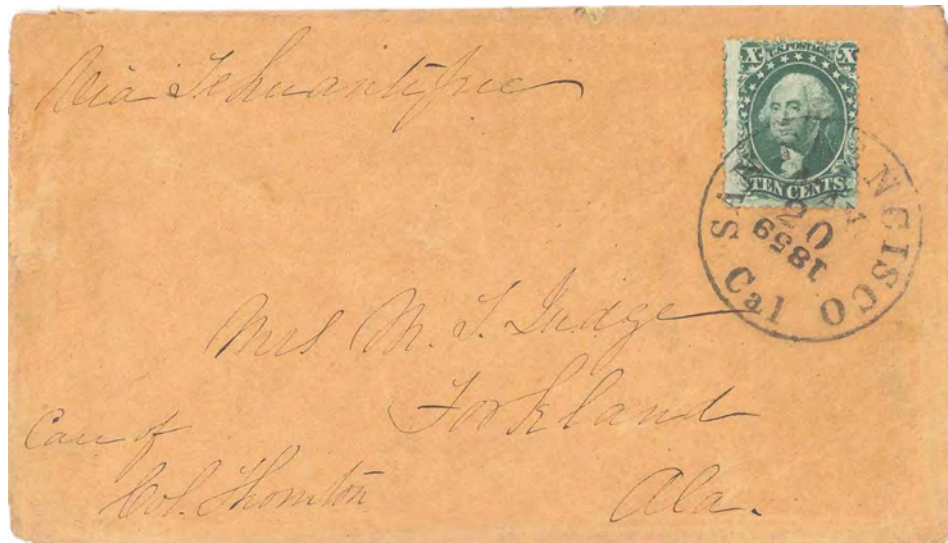 Via Tehuantepec
X U.S. POSTAGE X
TEN CENTS
SAN FRANCISCO Cal
20
1859
Mrs M. T. Judge
Forkland
Care of
Col. Thornton
Ala.